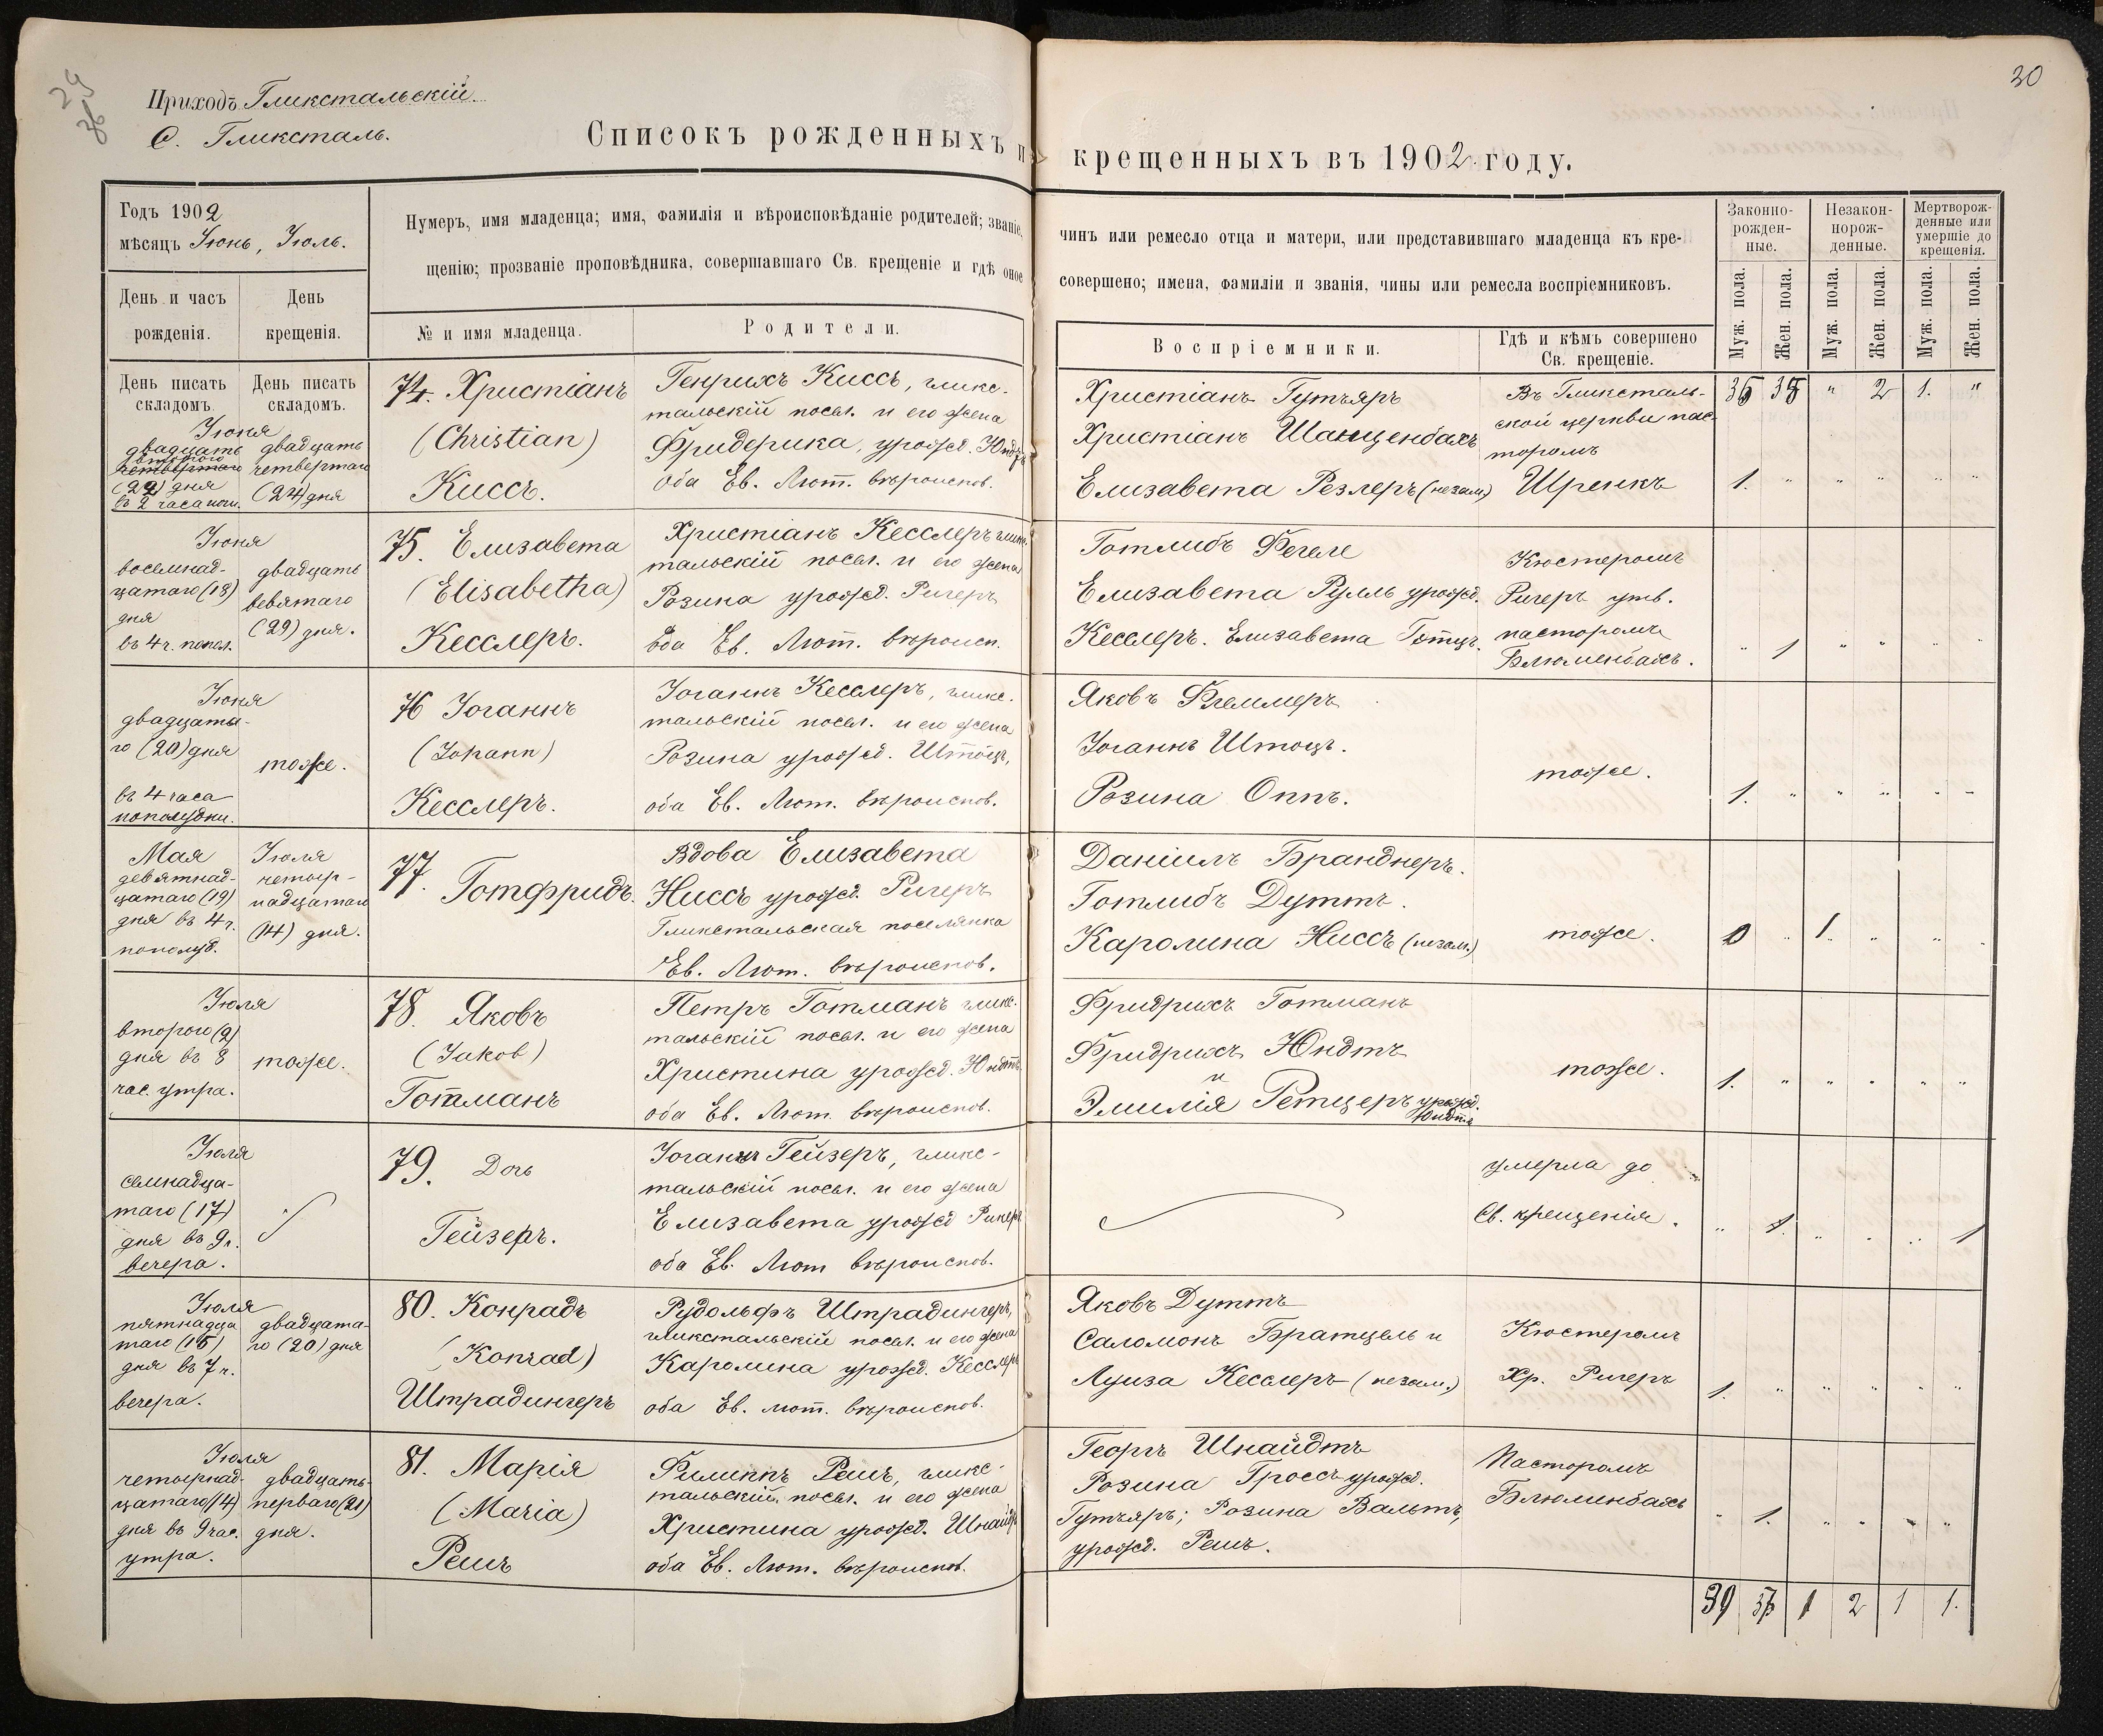 29
36
30
Приходъ Гликстальскій.
С. Гликсталь.
Списокъ рожденныхъ и крещенныхъ въ 1902 году.
Годъ 1902
мѣсяцъ Іюнь, Іюль.
День и часъ
рожденія.
День
крещенія.
Нумеръ, имя младенца; имя, фамилія и вѣроисповѣданіе родителей; званіе,
щенію; прозваніе проповѣдника, совершавшаго Св. крещеніе и гдѣ оное
№ и имя младенца.
Родители.
чинъ или ремесло отца и матери, или представившаго младенца къ кре-
совершено; имена, фамиліи и званія, чины или ремесла воспріемниковъ.
Воспріемники.
Гдѣ и кѣмъ совершено
Св. крещеніе.
Законно-
рожден-
ные.
Незакон-
норож-
денные.
Мертворож-
денные или
умершіе до
крещенія.
Муж. пола.
Жен. пола.
Муж. пола.
Жен. пола.
Муж. пола.
Жен. пола.
День писать
складомъ.
День писать
складомъ.
Іюня
двадцать
второго
четвертаго
(22) дня
въ 2 часа ночи.
двадцать
четвертаго
(24) дня
74. Христіанъ
(Christian)
Киссъ.
Генрихъ Киссъ, гликс-
тальскій посел. и его жена
Фридерика, урожд. Юндтъ
оба Ев. Лют. вѣроиспов.
Христіанъ Гутъяръ
Христіанъ Шанценбахъ
Елизавета Резлеръ (незам.)
Въ Гликсталь-
ской церкви пас-
торомъ
Шренкъ
35 " 2 1. "
1. " " " " "
Іюня
восемнад-
цатаго (18)
дня
въ 4 ч. попол.
двадцать
девятаго
(29) дня.
75. Елизавета
(Elisabetha)
Кесслеръ.
Христіанъ Кесслеръ гликс-
тальскій посел. и его жена
Розина урожд. Ригеръ
оба Ев. Лют. вѣроисп.
Готлибъ Фегеле
Елизавета Рулль урожд.
Кесслеръ. Елизавета Готцъ.
Кюстеромъ
Ригеръ утв.
пасторомъ
Блюменбахъ.
" 1 " " " "
Іюня
двадцата-
го (20) дня
въ 4 часа
пополудни.
тоже.
76 Іоганнъ
(Johann)
Кесслеръ.
Іоганнъ Кесслеръ, гликс-
тальскій посел. и его жена
Розина урожд. Штоцъ,
оба Ев. Лют. вѣроиспов.
Яковъ Флеммеръ
Іоганнъ Штоцъ.
Розина Оппъ.
тоже.
1. " " " " "
Мая
девятнад-
цатаго (19)
дня въ 4 ч.
пополуд.
Іюля
четыр-
надцатаго
(14) дня.
77. Готфридъ.
Вдова Елизавета
Ниссъ урожд. Ригеръ
Гликстальская поселянка
Ев. Лют. вѣроиспов.
Даніилъ Бранднеръ.
Готлибъ Дуттъ.
Каролина Ниссъ (незам.)
тоже.
0 " 1. " " "
Іюля
второго (2)
дня въ 8
час. утра.
тоже.
78. Яковъ
(Jakob)
Готтманъ
Петръ Готманъ гликс-
тальскій посел. и его жена
Христина урожд. Юндтъ
оба Ев. Лют. вѣроиспов.
Фридрихъ Готманъ
Фридрихъ Юндтъ
и
Эмилія Ретцеръ урожд.
Юндтъ
тоже.
1. " " " " "
Іюля
семнадца-
таго (17)
дня въ 9 ч.
вечера.
79. Дочь
Гейзеръ.
Іоганнъ Гейзеръ, гликс-
тальскій посел. и его жена
Елизавета урожд Рикеръ
оба Ев. Лют вѣроиспов.
умерла до
Св. крещенія.
" 1. " " " 1
Іюля
пятнадца
таго (15)
дня въ 7 ч.
вечера.
двадцата-
го (20) дня
80. Конрадъ
(Konrad)
Штрадингеръ
Рудольфъ Штрадингеръ,
гликстальскій посел. и его жена
Каролина урожд. Кесслеръ
оба Ев. лют. вѣроиспов.
Яковъ Дуттъ
Саломонъ Братцель и
Луиза Кесслеръ (незам.)
Кюстеромъ
Хр. Ригеръ
1. " " " " "
Іюля
четырнад-
цатаго (14)
дня въ 9 час.
утра.
двадцать-
перваго (21)
дня.
81. Марія
(Maria)
Решъ
Филиппъ Решъ, гликс-
тальскій посел. и его жена
Христина урожд. Шнайдтъ
оба Ев. Лют. вѣроиспов.
Георгъ Шнайдтъ
Розина Гроссъ урожд.
Гутъяръ; Розина Вальтъ,
урожд. Решъ.
Пасторомъ
Блюминбахъ
" 1. " " " "
39 1 2 1 1.